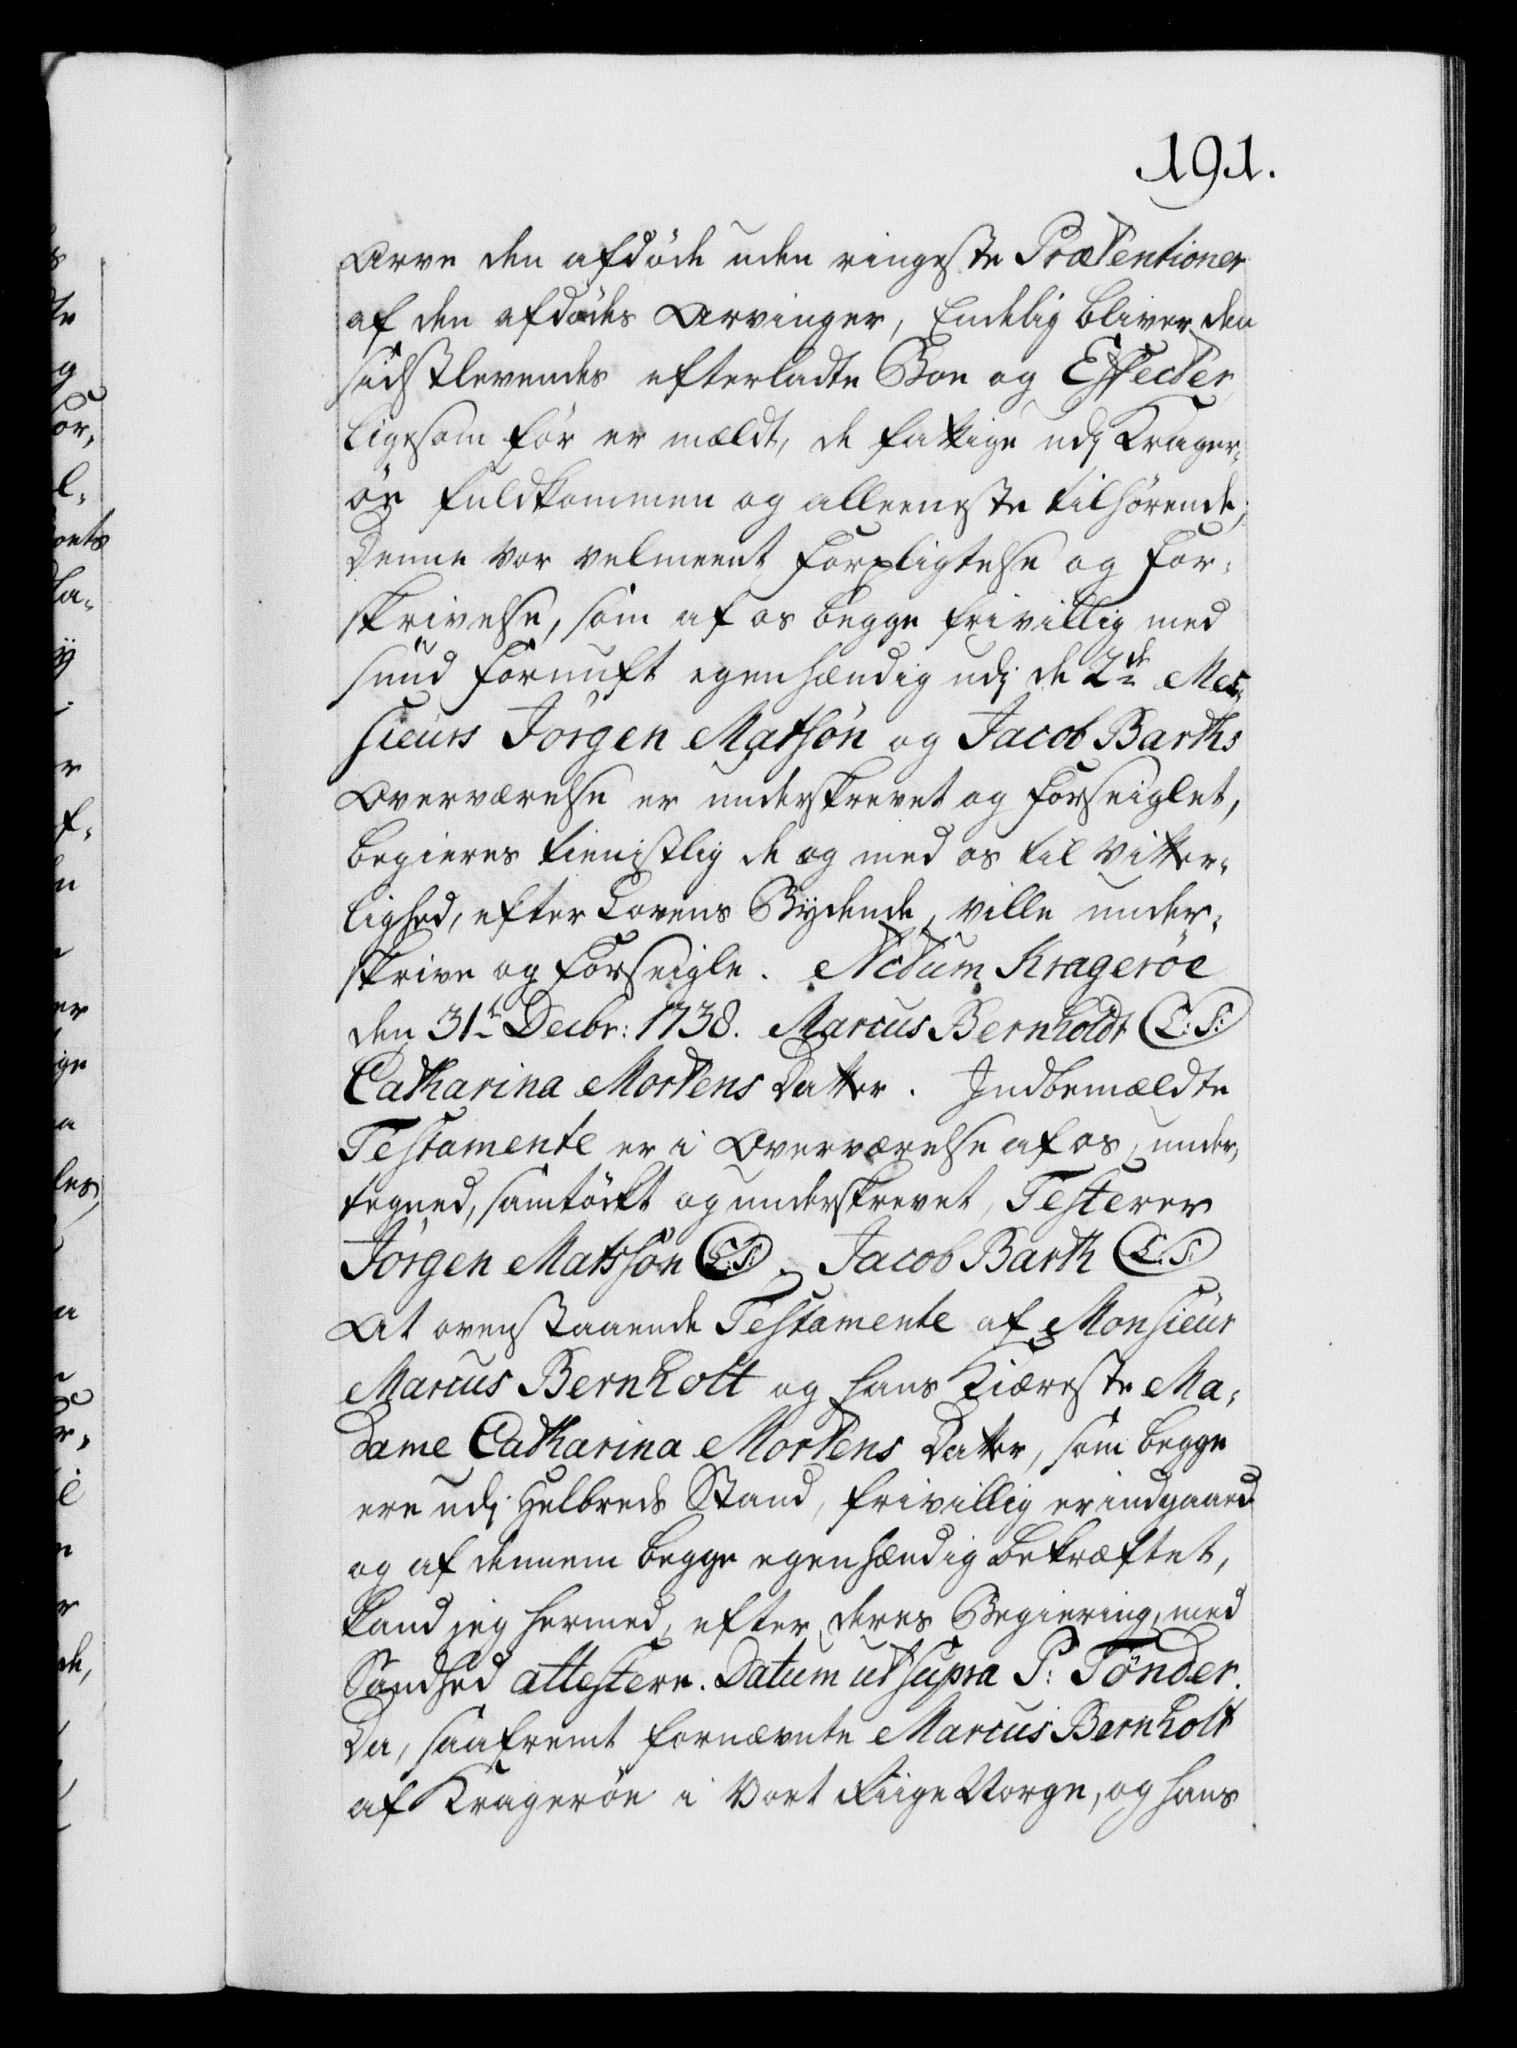 191.
Arve den afdöde uden ringeste Prætentioner
af den afdödes Arvinger, Endelig bliver den
sidstlevendes efterladte Boe og Effecter,
ligesom før er mældt, de fattige udj Krager-
öe fuldkommen og alleeneste tilhørende;
Denne vor velmeent Forpligtelse og For-
skrivelse, som af os begge frivillig med
sund Fornuft egenhændig udj de 2de Mes-
sieurs Jörgen Matsøn og Jacob Barths
Overværelse er underskrevet og forseiglet,
begieres tienistlig de og med os til Vitter-
lighed, efter Lovens Bydende, ville under-
skrive og forseigle. Actum Krageröe
den 31te Decbr: 1738. Marcus Bernholdt (L:S:)
Catharina Mortens Datter. Indbemældte
Testamente er i Overværelse af os, under-
tegned, samtöckt og underskrevet, Testerer
Jörgen Matssön (L:S:), Jacob Barth (L:S:)
At ovenstaaende Testamente af Monsieur
Marcus Bernholt og hans Kiæreste Ma-
dame Catharina Mortens Datter, som begge
ere udj Helbreds Stand, frivillig er indgaaed
og af dennem begge egenhændig bekræftet,
kand jeg hermed, efter deres Begiering, med
Sandhed attestere. Datum ut supra P: Tönder.
Da, saafremt fornævnte Marcus Bernholt
af Krageröe i Vort Riige Norge, og hans